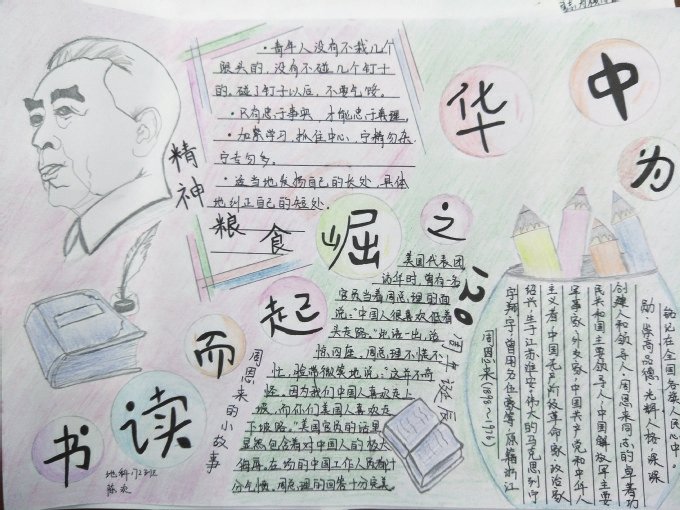 为
中
华
之
崛
起
而
读
书
·青年人没有不栽几个
跟头的,没有不碰几个钉子
的。碰了钉子以后,不要气馁。
·只有忠于事实,才能忠于真理。
·加紧学习,抓住中心,宁精勿杂,
宁专勿多。
·适当地发扬自己的长处,具体
地纠正自己的短处。
精神
粮食
120
周年诞辰
周恩来的小故事
美国代表团
访华时,曾有一名
官员当着周总理的面
说:“中国人很喜欢低着
头走路。”此话一出,语
惊四座。周总理不慌不
忙,脸带微笑地说:“这并不奇
怪。因为我们中国人喜欢走上
坡,而你们美国人喜欢走
下坡路。”美国官员的话里
显然包含着对中国人的极大
侮辱。在场的中国工作人员都十
分气愤。周总理的回答十分完美。
周恩来(1898~1976)
字翔宇,曾用名伍豪等,原籍浙江
绍兴,生于江苏淮安。伟大的马克思列宁
主义者,中国无产阶级革命家、政治家、
军事家、外交家,中国共产党和中华人
民共和国主要领导人,中国解放军主要
创建人和领导人。周恩来同志的卓著功
勋、崇高品德、光辉人格,深深
铭记在全国各族人民心中。
地科172班